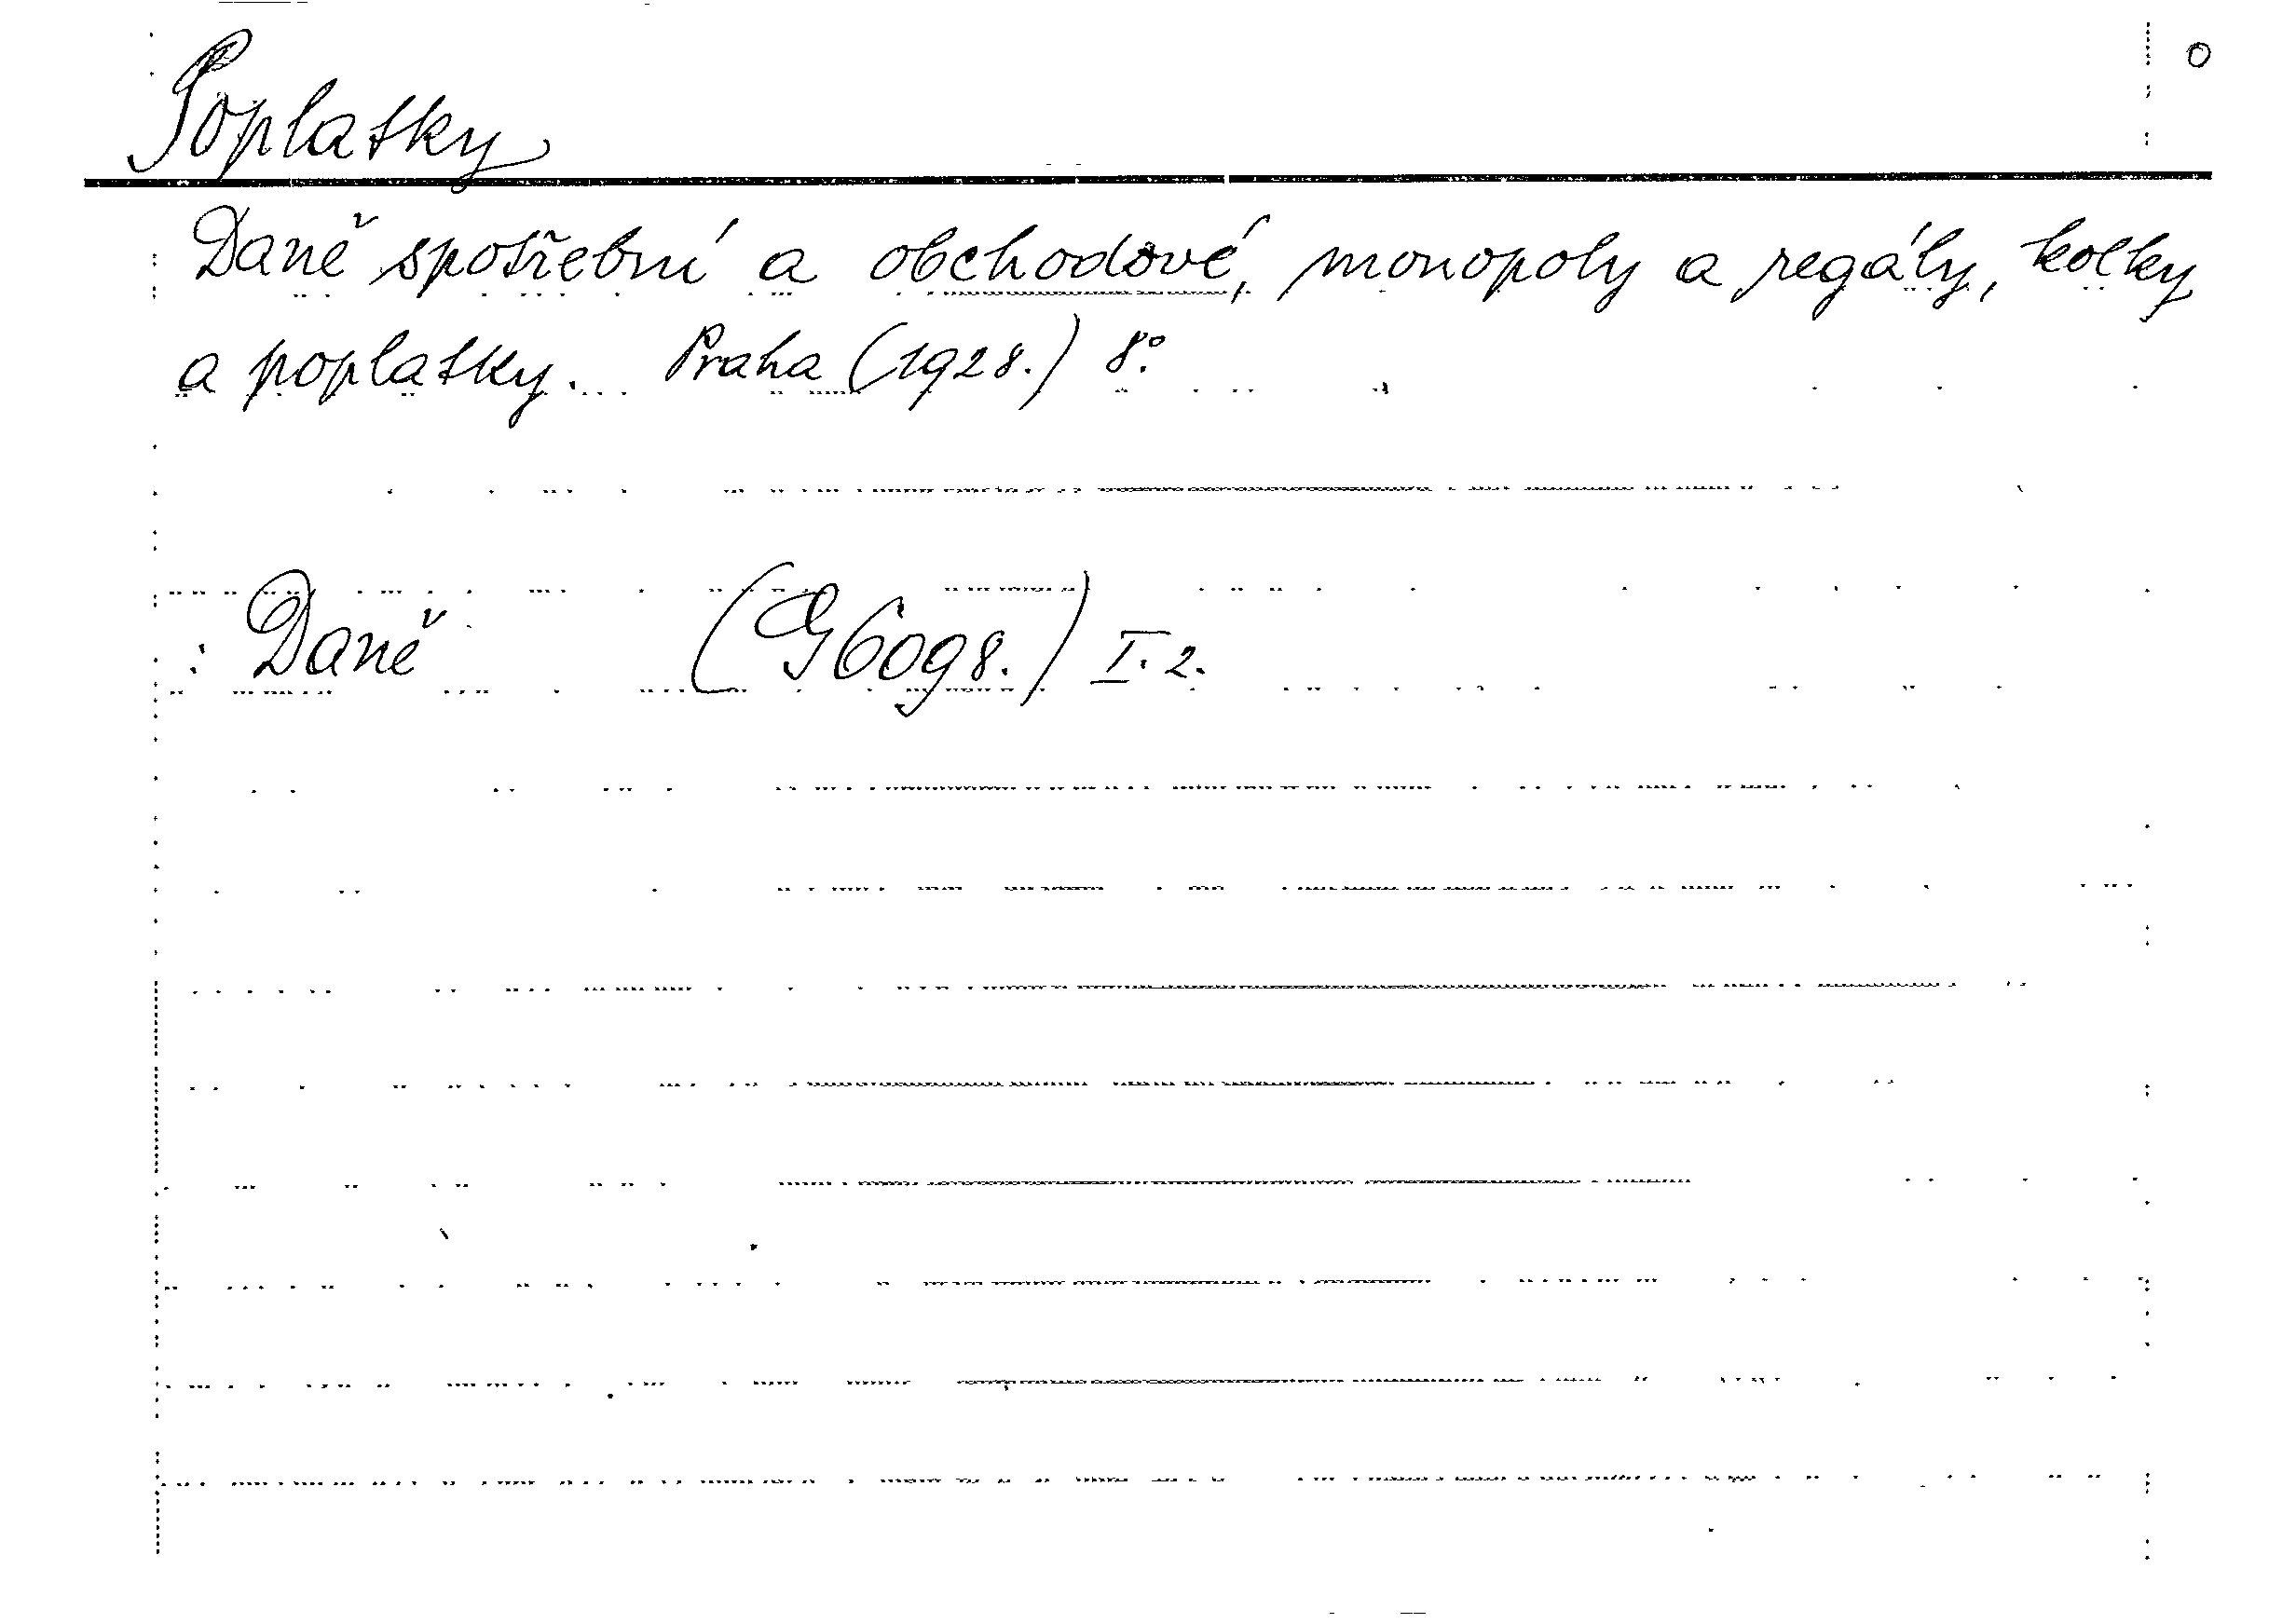 Poplatky
Daně spotřební a obchodové, monopoly a regály, kolky
a poplatky. Praha (1928.) 8°.
Daně (G 6098.) I. 2.